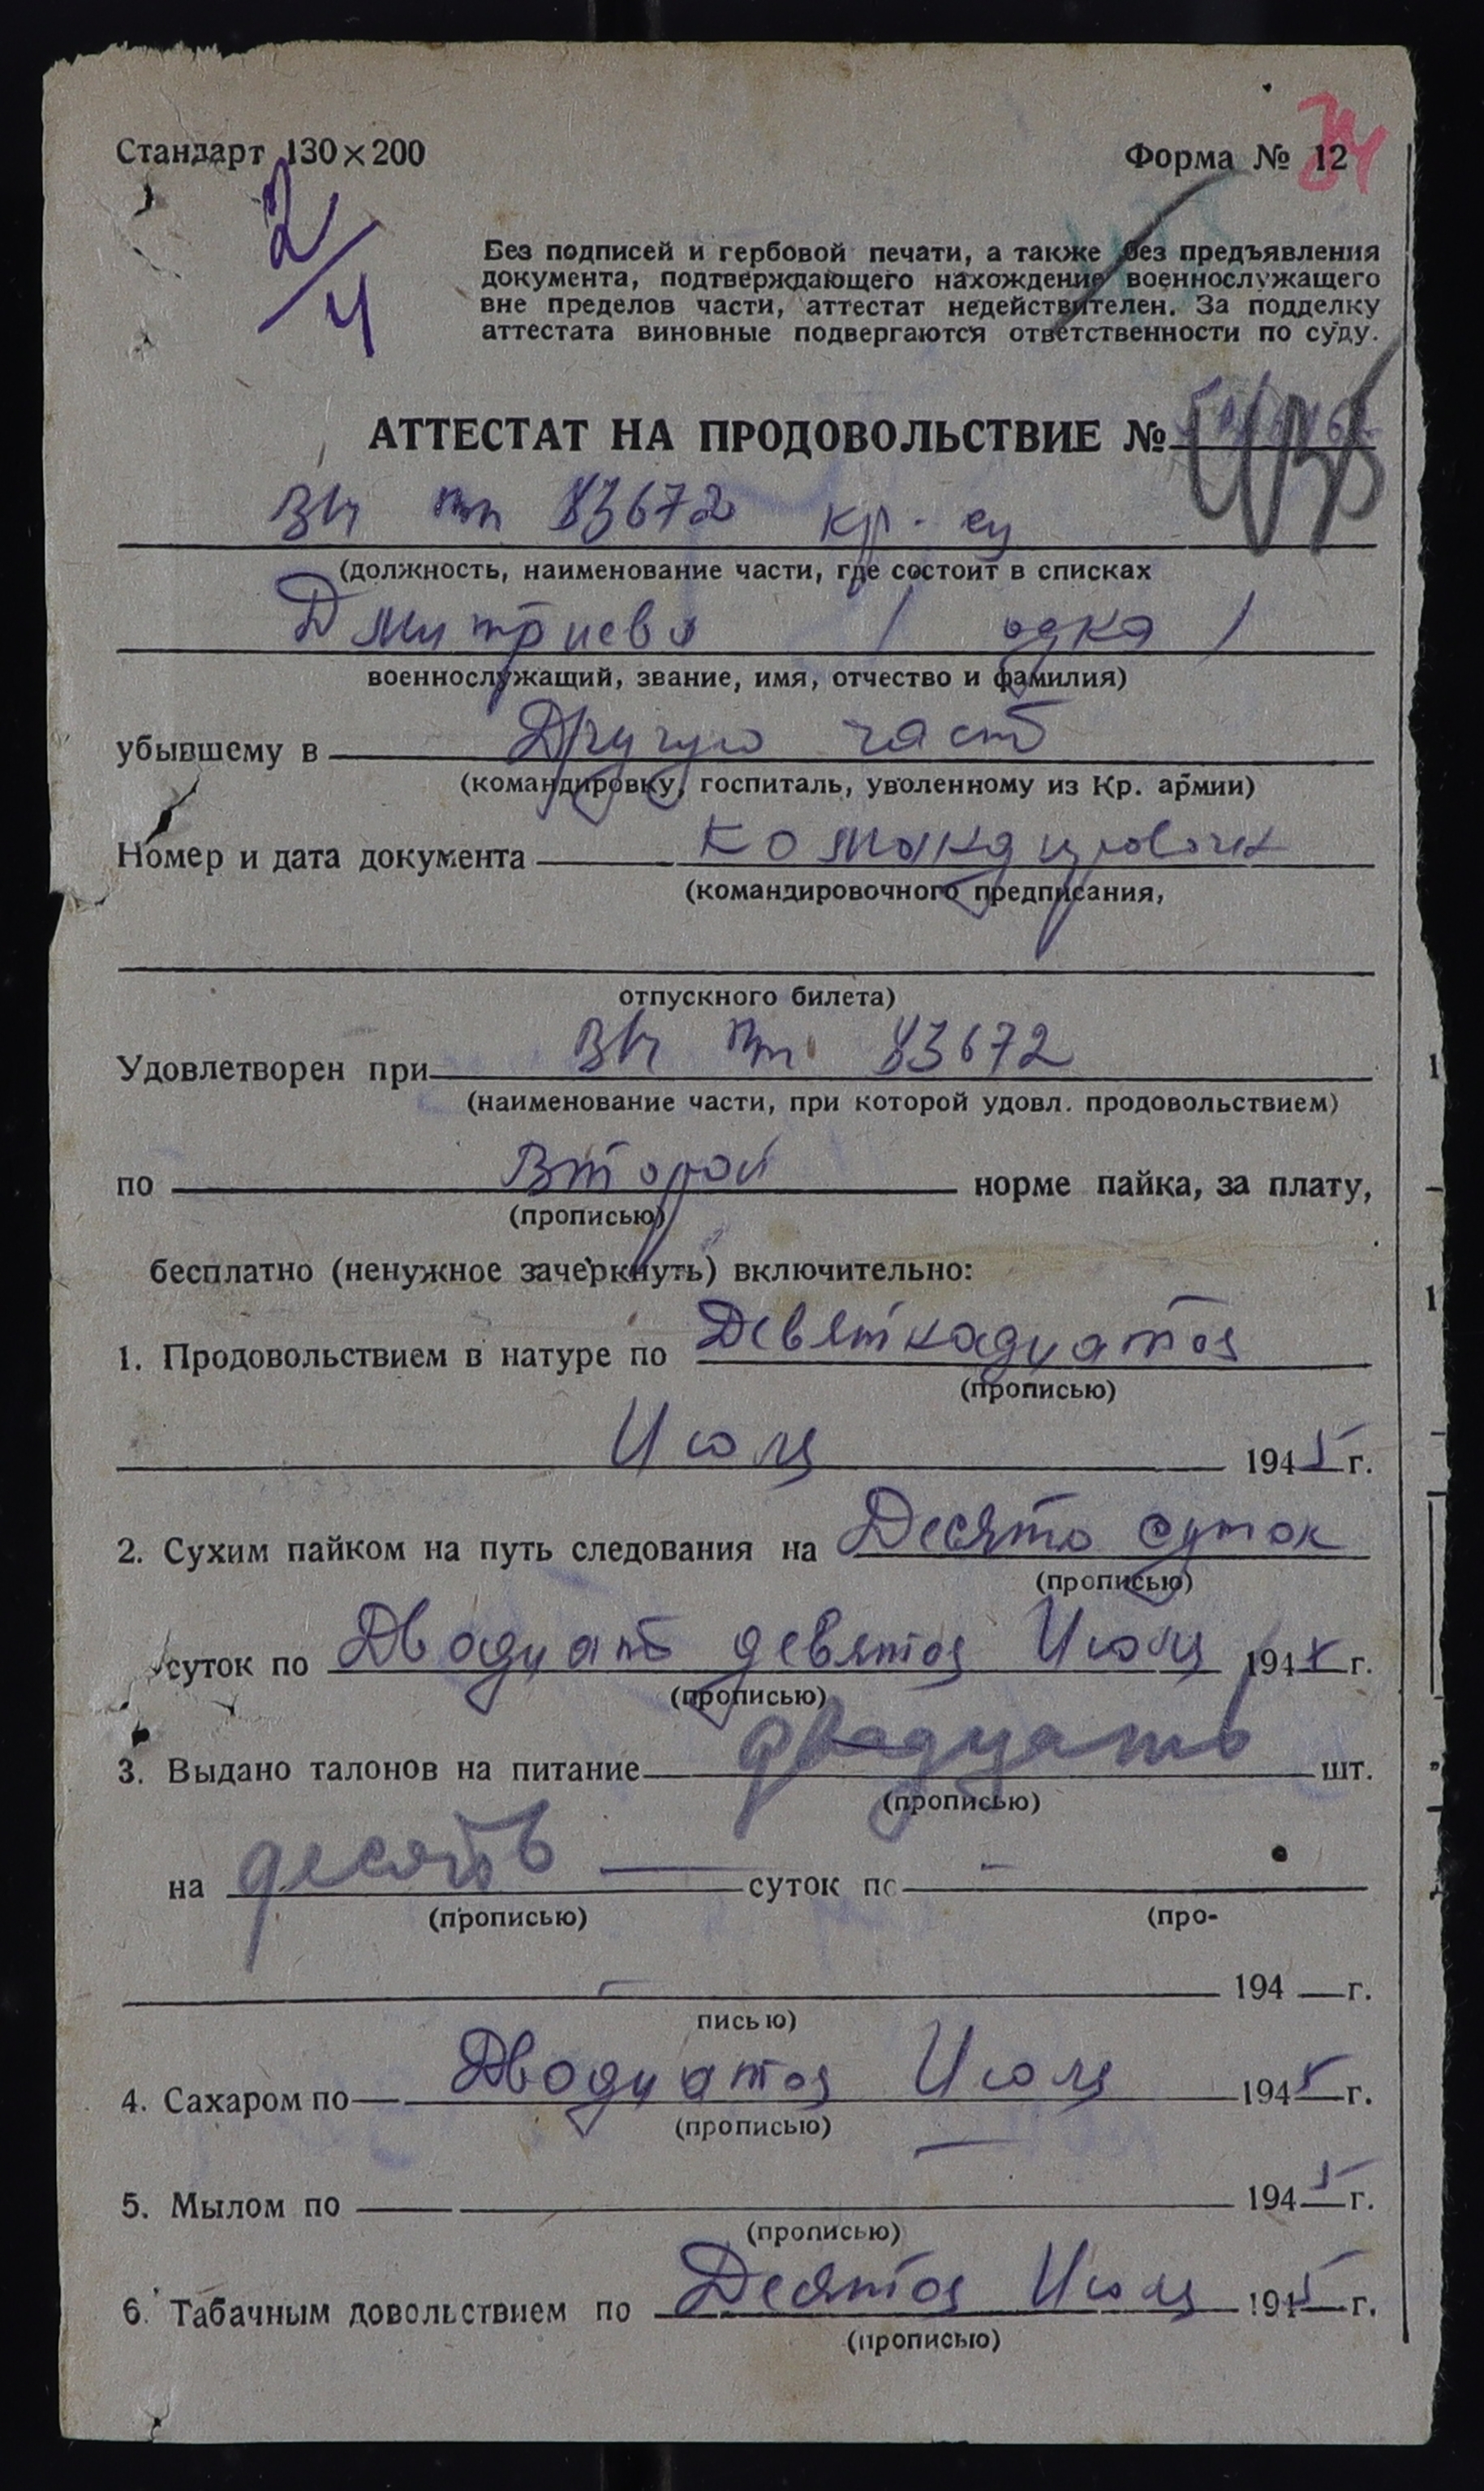 Стандарт 130×200
Форма № 12
34
2/4
Без подписей и гербовой печати, а также без предъявления
документа, подтверждающего нахождение военнослужащего
вне пределов части, аттестат недействителен. За подделку
аттестата виновные подвергаются ответственности по суду.
АТТЕСТАТ НА ПРОДОВОЛЬСТВИЕ №
Вч пп 83672 кр-ец
(должность, наименование части, где состоит в списках
Дмитриева / одна /
военнослужащий, звание, имя, отчество и фамилия)
убывшему в Другую част
(командировку, госпиталь, уволенному из Кр. армии)
Номер и дата документа
(командировочного предписания,
отпускного билета)
Удовлетворен при Вч пп 83672
(наименование части, при которой удовл. продовольствием)
по Второй норме пайка, за плату,
(прописью)
бесплатно (ненужное зачеркнуть) включительно:
1. Продовольствием в натуре по Девятнадцатое
(прописью)
Июля 1945 г.
2. Сухим пайком на путь следования на Десять суток
(прописью)
суток по Двадцат девятое Июля 1945 г.
(прописью)
3. Выдано талонов на питание двадцать шт.
(прописью)
на десять — суток по —
(прописью) (про-
— 194 — г.
писью)
4. Сахаром по Двадцатое Июля 1945 г.
(прописью)
5. Мылом по — 1945 г.
(прописью)
6. Табачным довольствием по Десятое Июля 1945 г.
(прописью)